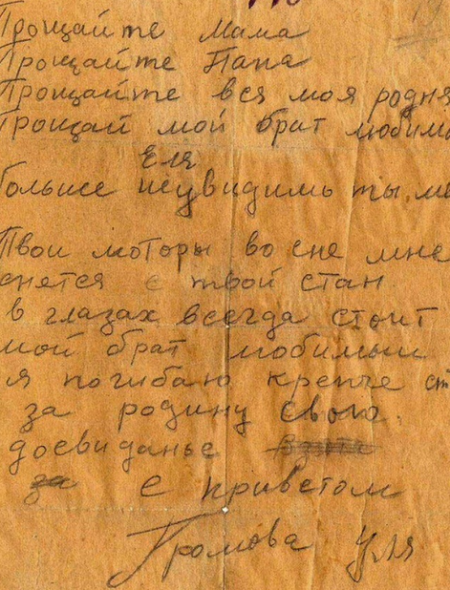 Прощайте Мама
Прощайте Папа
Прощайте вся моя родня
Прощай мой брат любимы
Еля
больше неувидишь ты, ме
Твои моторы во сне мне
снятся с твой стан
в глазах всегда стоит
мой брат любимый
я погибаю крепче ст
за родину свою.
досвиданье
за с приветом
Громова Уля